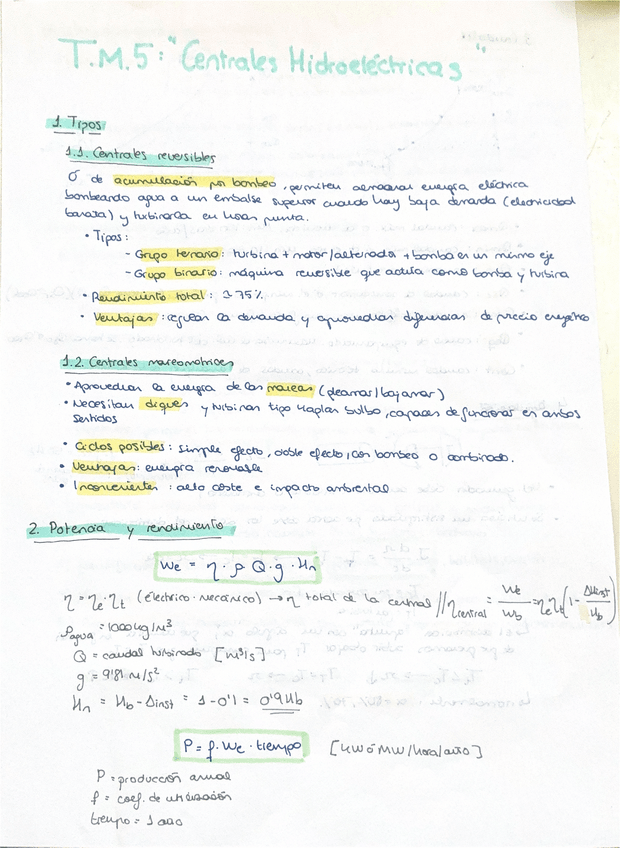 T.M.5: "Centrales Hidroeléctricas"
1. Tipos
1.1. Centrales reversibles
O de acumulación por bombeo, permiten almacenar energía eléctrica
bombeando agua a un embalse superior cuando hay baja demanda (electricidad
barata) y turbinarla en horas punta.
• Tipos:
- Grupo ternario: turbina + motor/alternador + bomba en un mismo eje
- Grupo binario: máquina reversible que actúa como bomba y turbina
• Rendimiento total: 75%
• Ventajas: regular la demanda y aprovechar diferencias de precio energético
1.2. Centrales mareomotrices
• Aprovechan la energía de las mareas (pleamar/bajamar)
• Necesitan diques y turbinas tipo Kaplan bulbo, capaces de funcionar en ambos
sentidos
• Ciclos posibles: simple efecto, doble efecto, con bombeo o combinado.
• Ventajas: energía renovable
• Inconvenientes: alto coste e impacto ambiental
2. Potencia y rendimiento
We = η · ρ · Q · g · Hn
η = ηe · ηt (eléctrico · mecánico) → η total de la central // ηcentral = We/Wb = ηe ηt (1 - ΔHinst/Hb)
ρagua = 1000 kg/m³
Q = caudal turbinado [m³/s]
g = 9'81 m/s²
Hn = Hb - Δinst = 1 - 0'1 = 0'9 Hb
P = f · We · tiempo [kW ó MW/hora/año]
P = producción anual
f = coef. de utilización
tiempo = 1 año